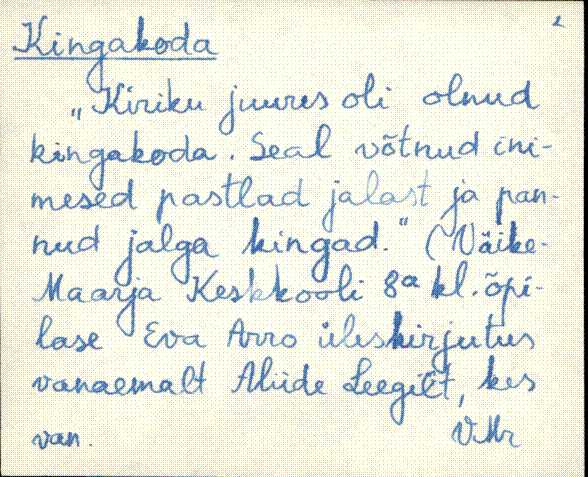 2
Kingakoda
„Kiriku juures oli olnud
kingakoda. Seal võtnud ini-
mesed pastlad jalast ja pan-
nud jalga kingad." (Väike-
Maarja Keskkooli 8a kl. õpi-
lase Eva Arro üleskirjutus
vanaemalt Aliide Leegilt, kes
van.
V.Mr